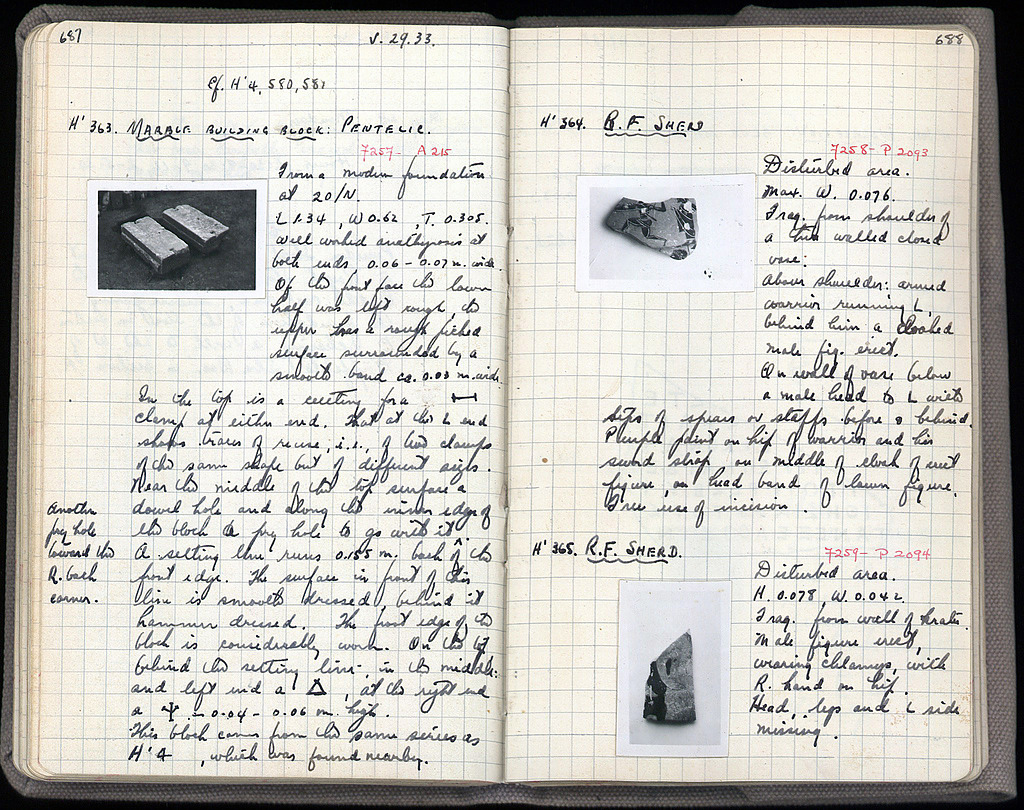 687
V. 29. 33.
Cf. H'4, 580, 581
H' 363. MARBLE BUILDING BLOCK: PENTELIC.
7257 - A 215
From a modern foundation
at 20/N.
L 1.34, W 0.62, T. 0.305.
Well worked anathyrosis at
both ends 0.06 - 0.07 m. wide.
Of the front face the lower
half was left rough, the
upper has a rough picked
surface surrounded by a
smooth band ca. 0.03 m. wide.
In the top is a cutting for a
clamp at either end. That at the L end
shows traces of reuse, i.e., of two clamps
of the same shape but of different sizes.
Near the middle of the top surface a
dowel hole and along the inner edge of
the block a pry hole to go with it.
Another
pry hole
toward the
R. back
corner.
A setting line runs 0.155 m. back of the
front edge. The surface in front of this
line is smooth dressed, behind it
hammer dressed. The front edge of the
block is considerably worn. On the top
behind the setting line, in the middle
and left end a Δ, at the right end
a Ψ - 0.04 - 0.06 m. high.
This block comes from the same series as
H'4, which was found nearby.
688
H' 364. R.F. SHERD
7258 - P 2093
Disturbed area.
Max. W. 0.076.
Frag. from shoulder of
a thin walled closed
vase:
Above shoulder: armed
warrior running L,
behind him a cloaked
male fig. erect.
On wall of vase below
a male head to L with
tips of spears or staffs before & behind.
Purple paint on hip of warrior and his
sword strap on middle of cloak of erect
figure, on head band of lower figure.
Free use of incision.
H' 365. R.F. SHERD.
7259 - P 2094
Disturbed area.
H. 0.078 W. 0.042
Frag. from wall of krater.
Male figure erect,
wearing chlamys, with
R. hand on hip.
Head, legs and L side
missing.